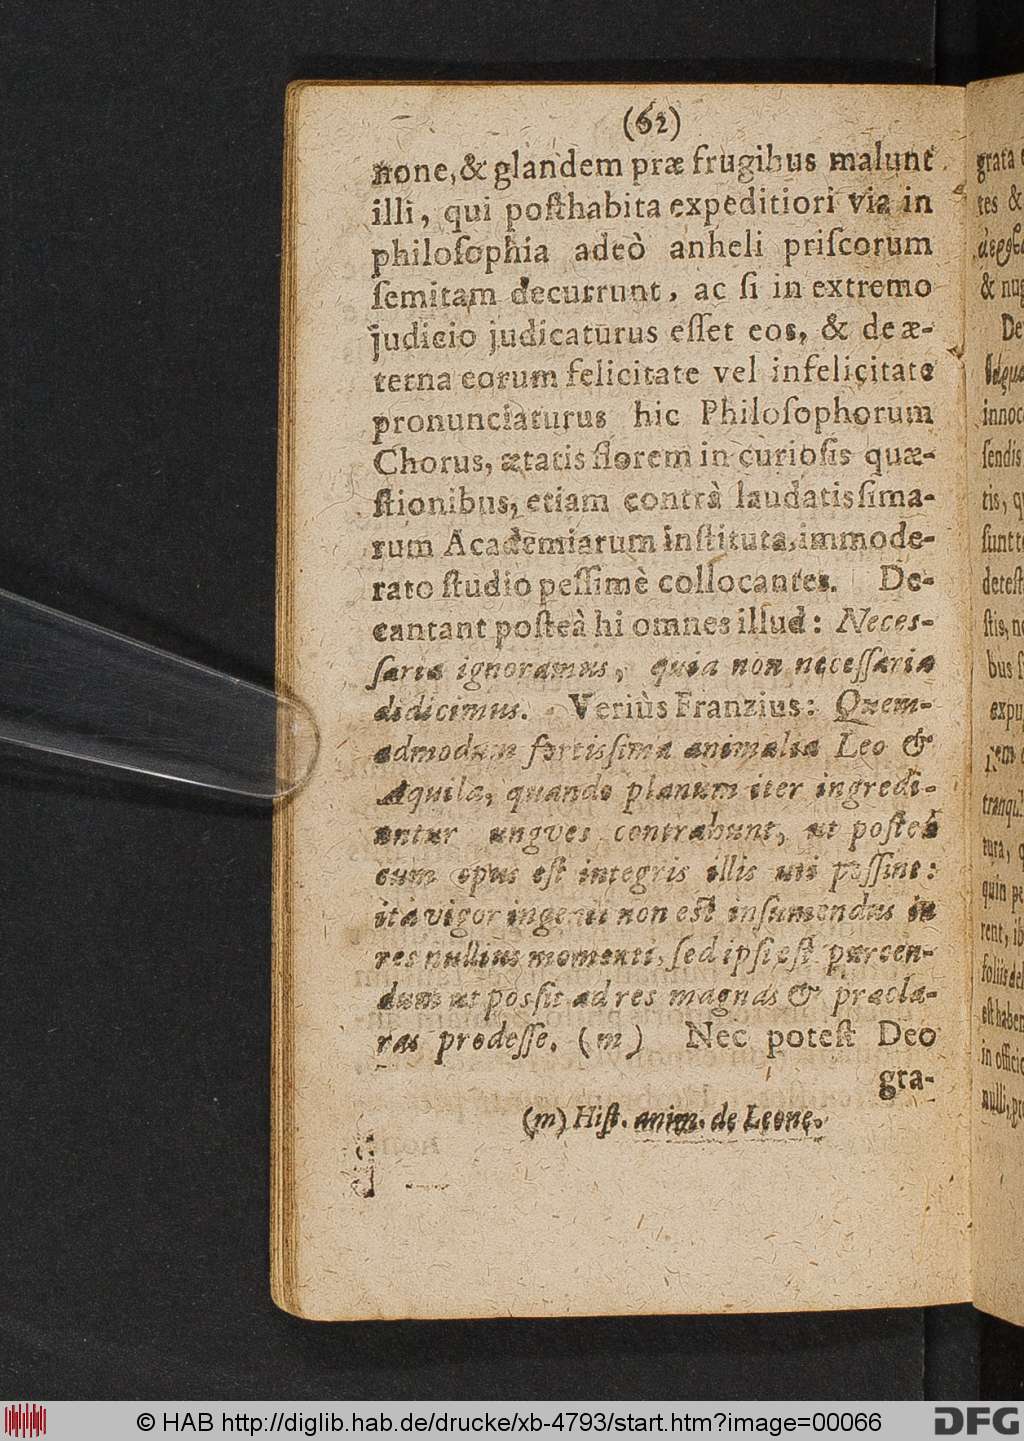 (62)
none, & glandem præ frugibus malunt
illi, qui posthabita expeditiori via in
philoſophia adeò anheli priſcorum
ſemitam decurrunt, ac ſi in extremo
judicio judicaturus eſſet eos, & de æ-
terna eorum felicitate vel infelicitate
pronunciaturus hic Philoſophorum
Chorus, ætatis florem in curioſis quæ-
ſtionibus, etiam contrà laudatisſima-
rum Academiarum inſtituta, immode-
rato ſtudio peſſimè collocantes. De-
cantant poſteà hi omnes illud: Neces-
ſaria ignoramus, quia non neceſſaria
didicimus. Veriùs Franzius: Quem-
admodum fortisſima animalia Leo &
Aquila, quando planum iter ingredi-
untur ungves contrahunt, ut poſteà
cum opus eſt integris illis uti poſſint:
ità vigor ingenii non eſt inſumendus in
res nullius momenti, ſed ipſi eſt parcen-
dum ut posſit ad res magnas & præcla-
ras prodeſſe. (m) Nec poteſt Deo
gra-
(m) Hiſt. anim. de Leone.
grata
tes &
& nug
De
innoc
ſendis
tis, q
ſunt
deteſt
ſtis, n
bus ſ
expu
rem
tranqu
tura,
quin pe
rent, ib
foliis del
eſt haben
in officio
nulli, pr
© HAB http://diglib.hab.de/drucke/xb-4793/start.htm?image=00066
DFG